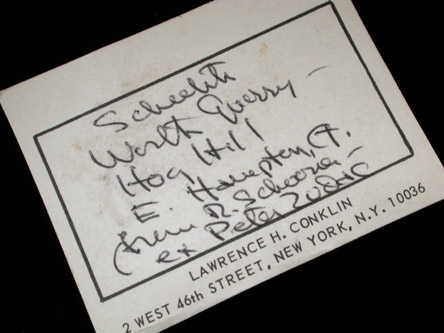 Scheelite
Worth Querry –
Hog Hill
E. Hampton, Ct.
(from R. Schooner –
ex Peter Zodac
LAWRENCE H. CONKLIN
2 WEST 46th STREET, NEW YORK, N.Y. 10036